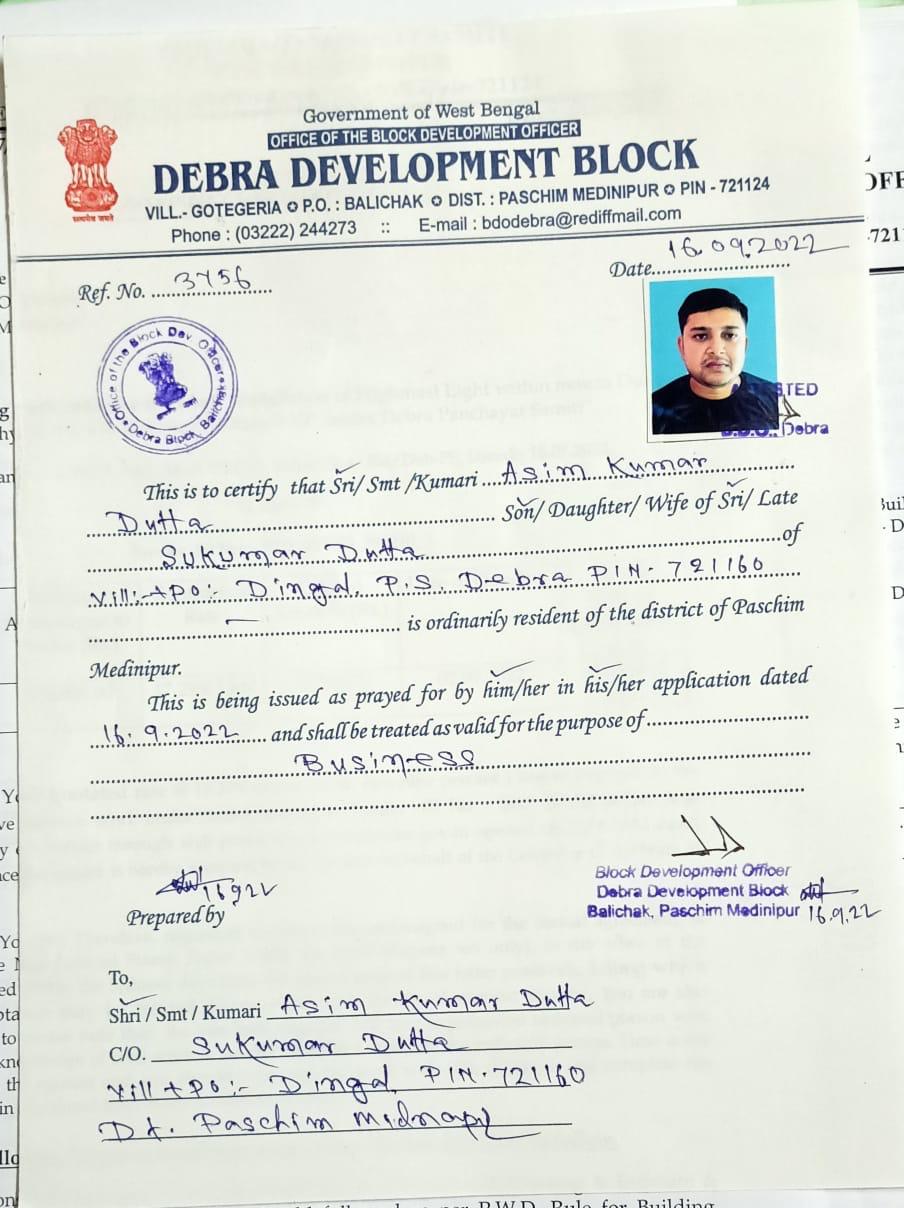 Government of West Bengal
OFFICE OF THE BLOCK DEVELOPMENT OFFICER
DEBRA DEVELOPMENT BLOCK
VILL.- GOTEGERIA ✪ P.O. : BALICHAK ✪ DIST. : PASCHIM MEDINIPUR ✪ PIN - 721124
Phone : (03222) 244273 :: E-mail : bdodebra@rediffmail.com
सत्यमेव जयते
Ref. No. 3756
Date 16.09.2022
Office of the Block Dev. Officer
Debra Block, Balichak
B.D.O., Debra
This is to certify that Sri/ Smt /Kumari Asim Kumar
Dutta Son/ Daughter/ Wife of Sri/ Late
Sukumar Dutta of
Vill:-+PO:- Dingal, P.S. Debra PIN- 721160
is ordinarily resident of the district of Paschim
Medinipur.
This is being issued as prayed for by him/her in his/her application dated
16.9.2022 and shall be treated as valid for the purpose of
Business
16.9.22
Prepared by
Block Development Officer
Debra Development Block
Balichak, Paschim Medinipur 16.9.22
To,
Shri / Smt / Kumari Asim Kumar Dutta
C/O. Sukumar Dutta
Vill + PO:- Dingal, PIN-721160
Dt. Paschim Midnapur